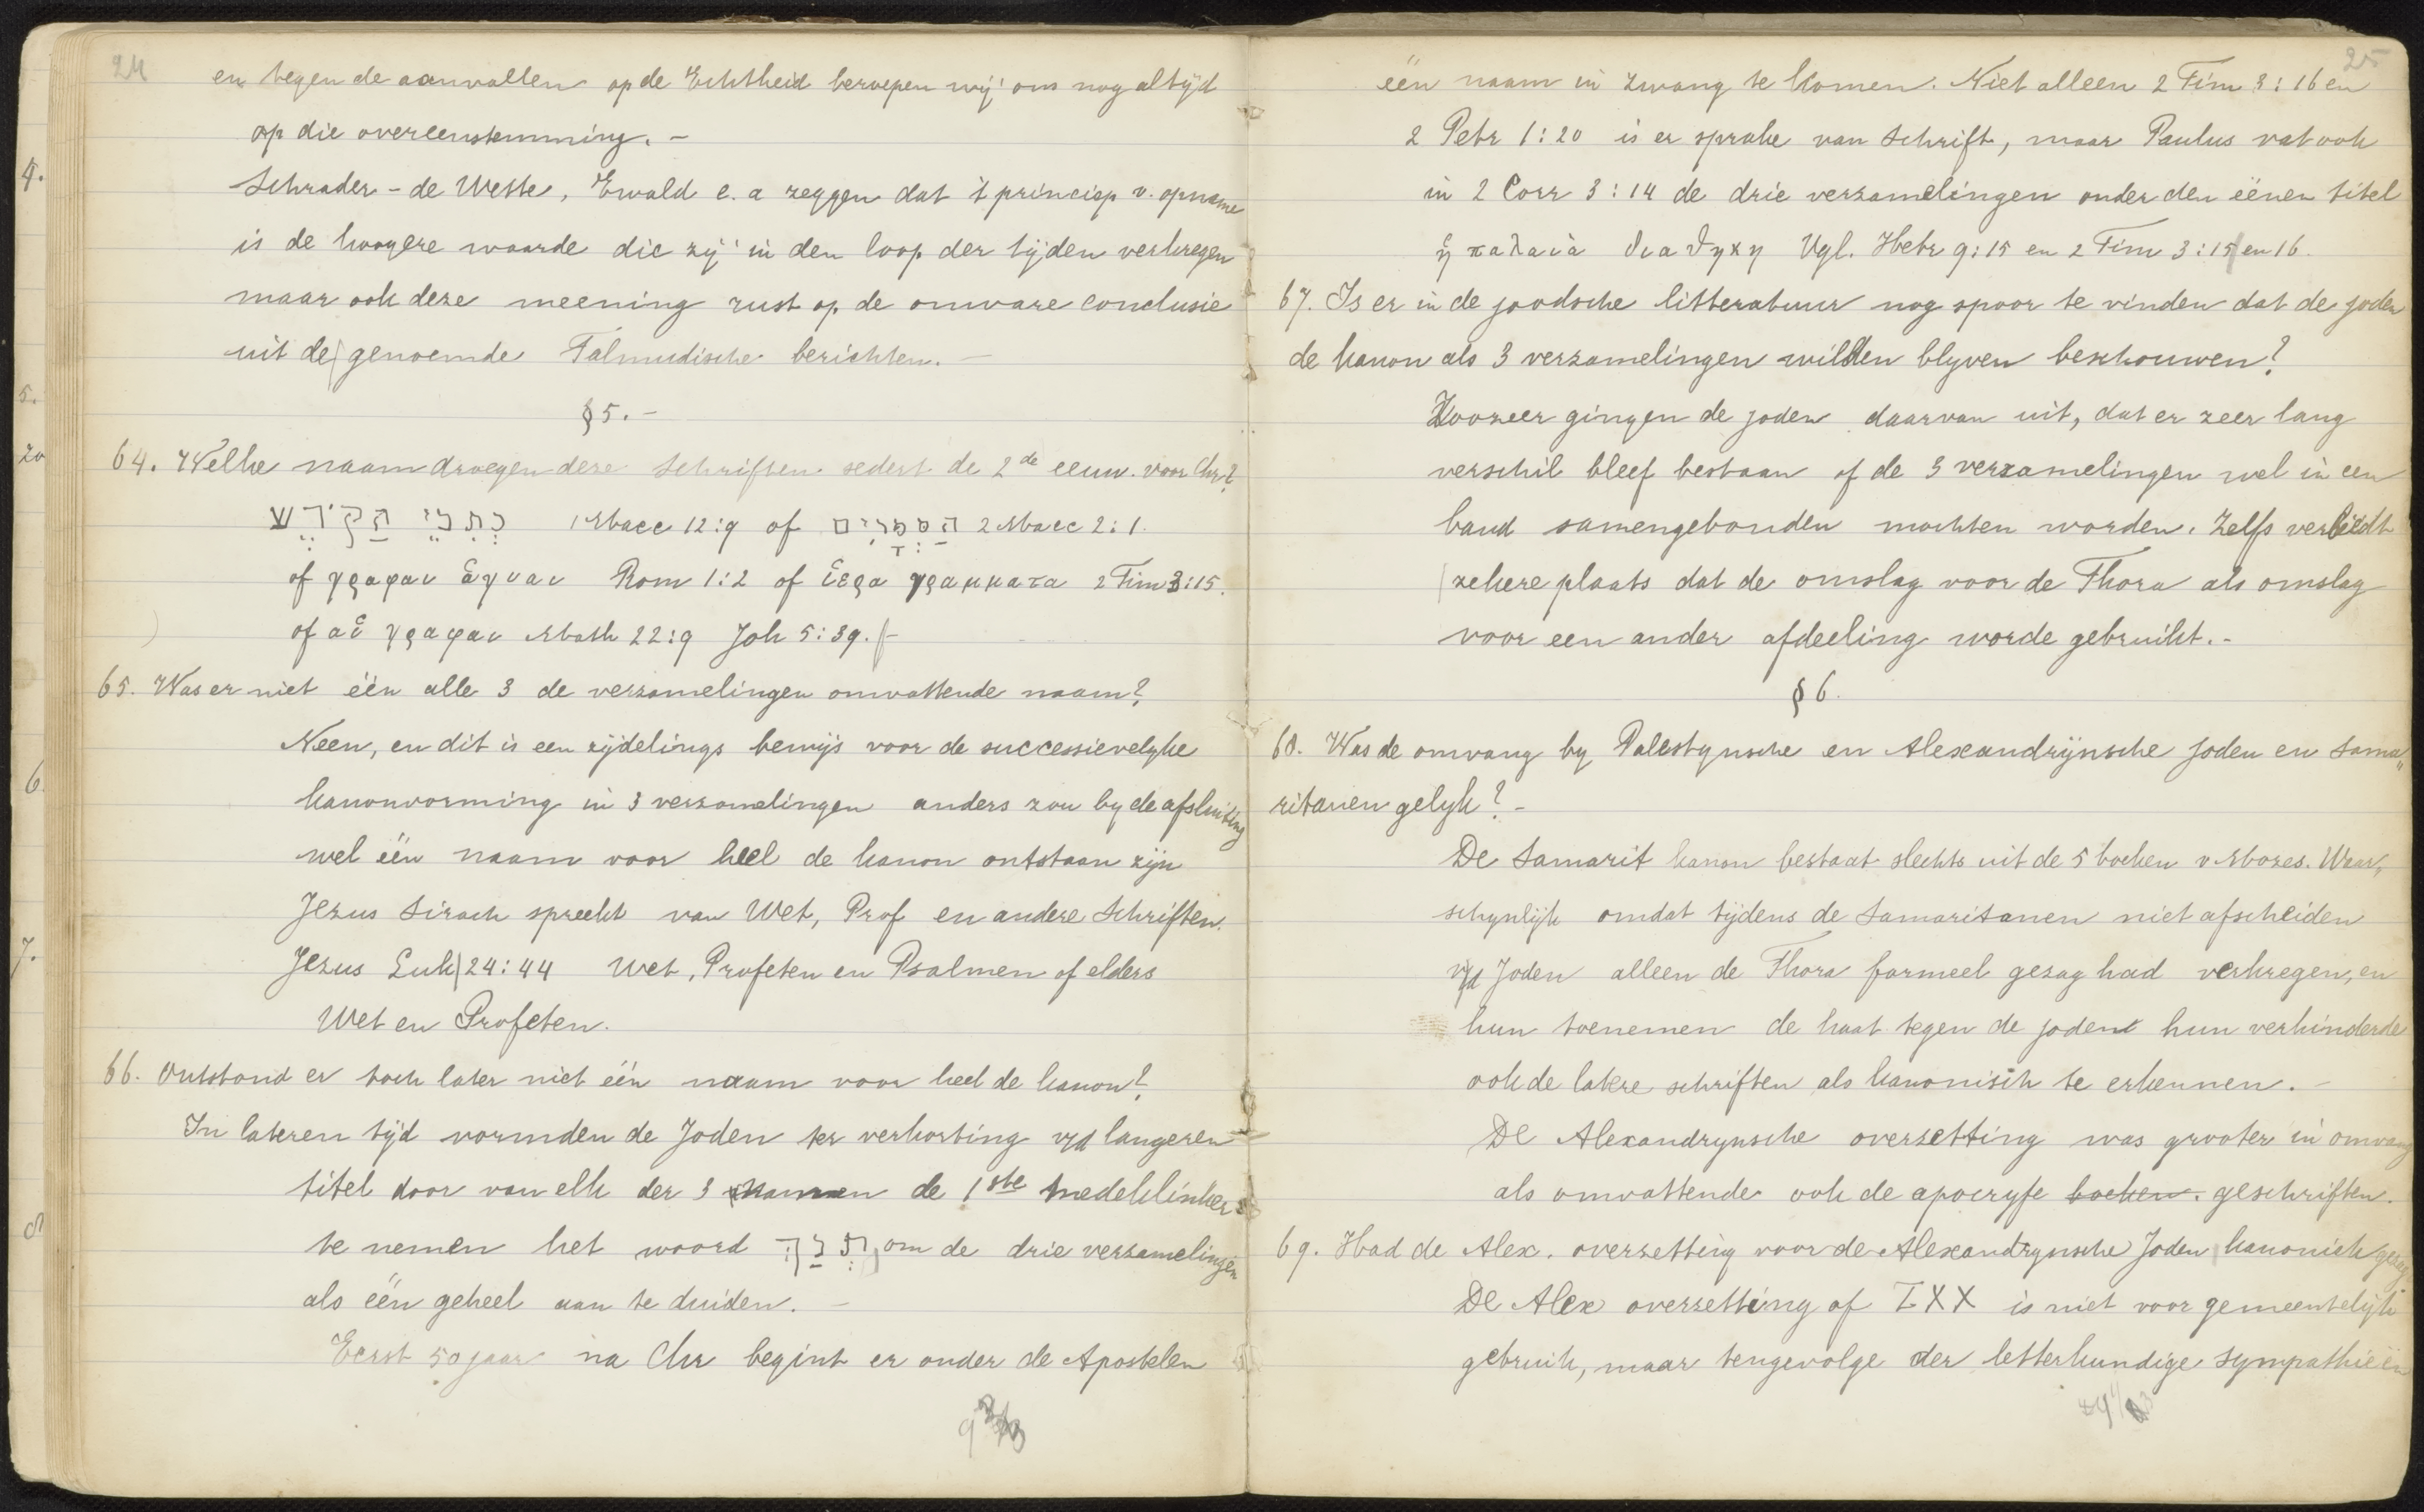 24
en tegen de aanvallen op de Echtheid beroepen wij ons nog altijd
op die overeenstemming. -
Schrader - de Wette, Ewald e. a zeggen dat 't principp v. opname
is de hoogere waarde die zij in den loop der tijden verkregen
maar ook deze meening rust op de onware conclusie
uit de genoemde Talmudische berichten. -
§ 5. -
64. Welke naam droegen deze Schriften sedert de 2de eeuw. voor Chr?
כִתְבֵי הַקֹּדֶשׁ 1 Macc 12:9 of הַסְּפָרִים 2 Macc 2:1.
of γραφαι ἁγιαι Rom 1:2 of ἱερα γραμματα 2 Tim 3:15.
of αἱ γραφαι Math 22:9 Joh 5:39. -
65. Was er niet één alle 3 de verzamelingen omvattende naam?
Neen, en dit is een zijdelings bewijs voor de successievelyke
kanonvorming in 3 verzamelingen anders zou by de afsluiting
wel één naam voor heel de kanon ontstaan zijn
Jezus Sirach spreekt van Wet, Prof en andere Schriften.
Jezus Luk 24:44 Wet, Profeten en Psalmen of elders
Wet en Profeten.
66. Ontstond er toch later niet één naam voor heel de kanon?
In lateren tijd vormden de Joden ter verkorting v/d langeren
titel door van elk der 3 namen de 1ste medeklinkers
te nemen het woord תְנַךְ om de drie verzamelingen
als één geheel aan te duiden. -
Eerst 50 jaar na Chr begint er onder de Apostelen
25
één naam in zwang te komen. Niet alleen 2 Tim 3:16 en
2 Petr 1:20 is er sprake van Schrift, maar Paulus vat ook
in 2 Corr 3:14 de drie verzamelingen onder den éénen titel
ἡ παλαιὰ διαθηκη Vgl. Hebr 9:15 en 2 Tim 3:15 en 16.
67. Is er in de joodsche litteratuur nog spoor te vinden dat de joden
de kanon als 3 verzamelingen wilden blyven beschouwen?
Zoozeer gingen de joden daarvan uit, dat er zeer lang
verschil bleef bestaan of de 3 verzamelingen wel in een
band samengebonden mochten worden. Zelfs verbiedt
zekere plaats dat de omslag voor de Thora als omslag
voor een ander afdeeling worde gebruikt. -
§ 6.
68. Was de omvang by Palestynsche en Alexandrijnsche Joden en Sama„
ritanen gelyk? -
De Samarit kanon bestaat slechts uit de 5 boeken v Mozes. Waar„
schynlijk omdat tijdens de Samaritanen niet afscheiden
v/d Joden alleen de Thora formeel gezag had verkregen, en
hun toenemen de haat tegen de joden hun verhinderde
ook de latere schriften als kanonisch te erkennen. -
De Alexandrynsche overzetting was grooter in omvang
als omvattende ook de apocryfe boeken. geschriften.
69. Had de Alex. overzetting voor de Alexandrynsche Joden kanoniek gezag
De Alex overzetting of LXX is niet voor gemeentelijk
gebruik, maar tengevolge der letterkundige sympathieën
4.
5.
20
6
7.
8